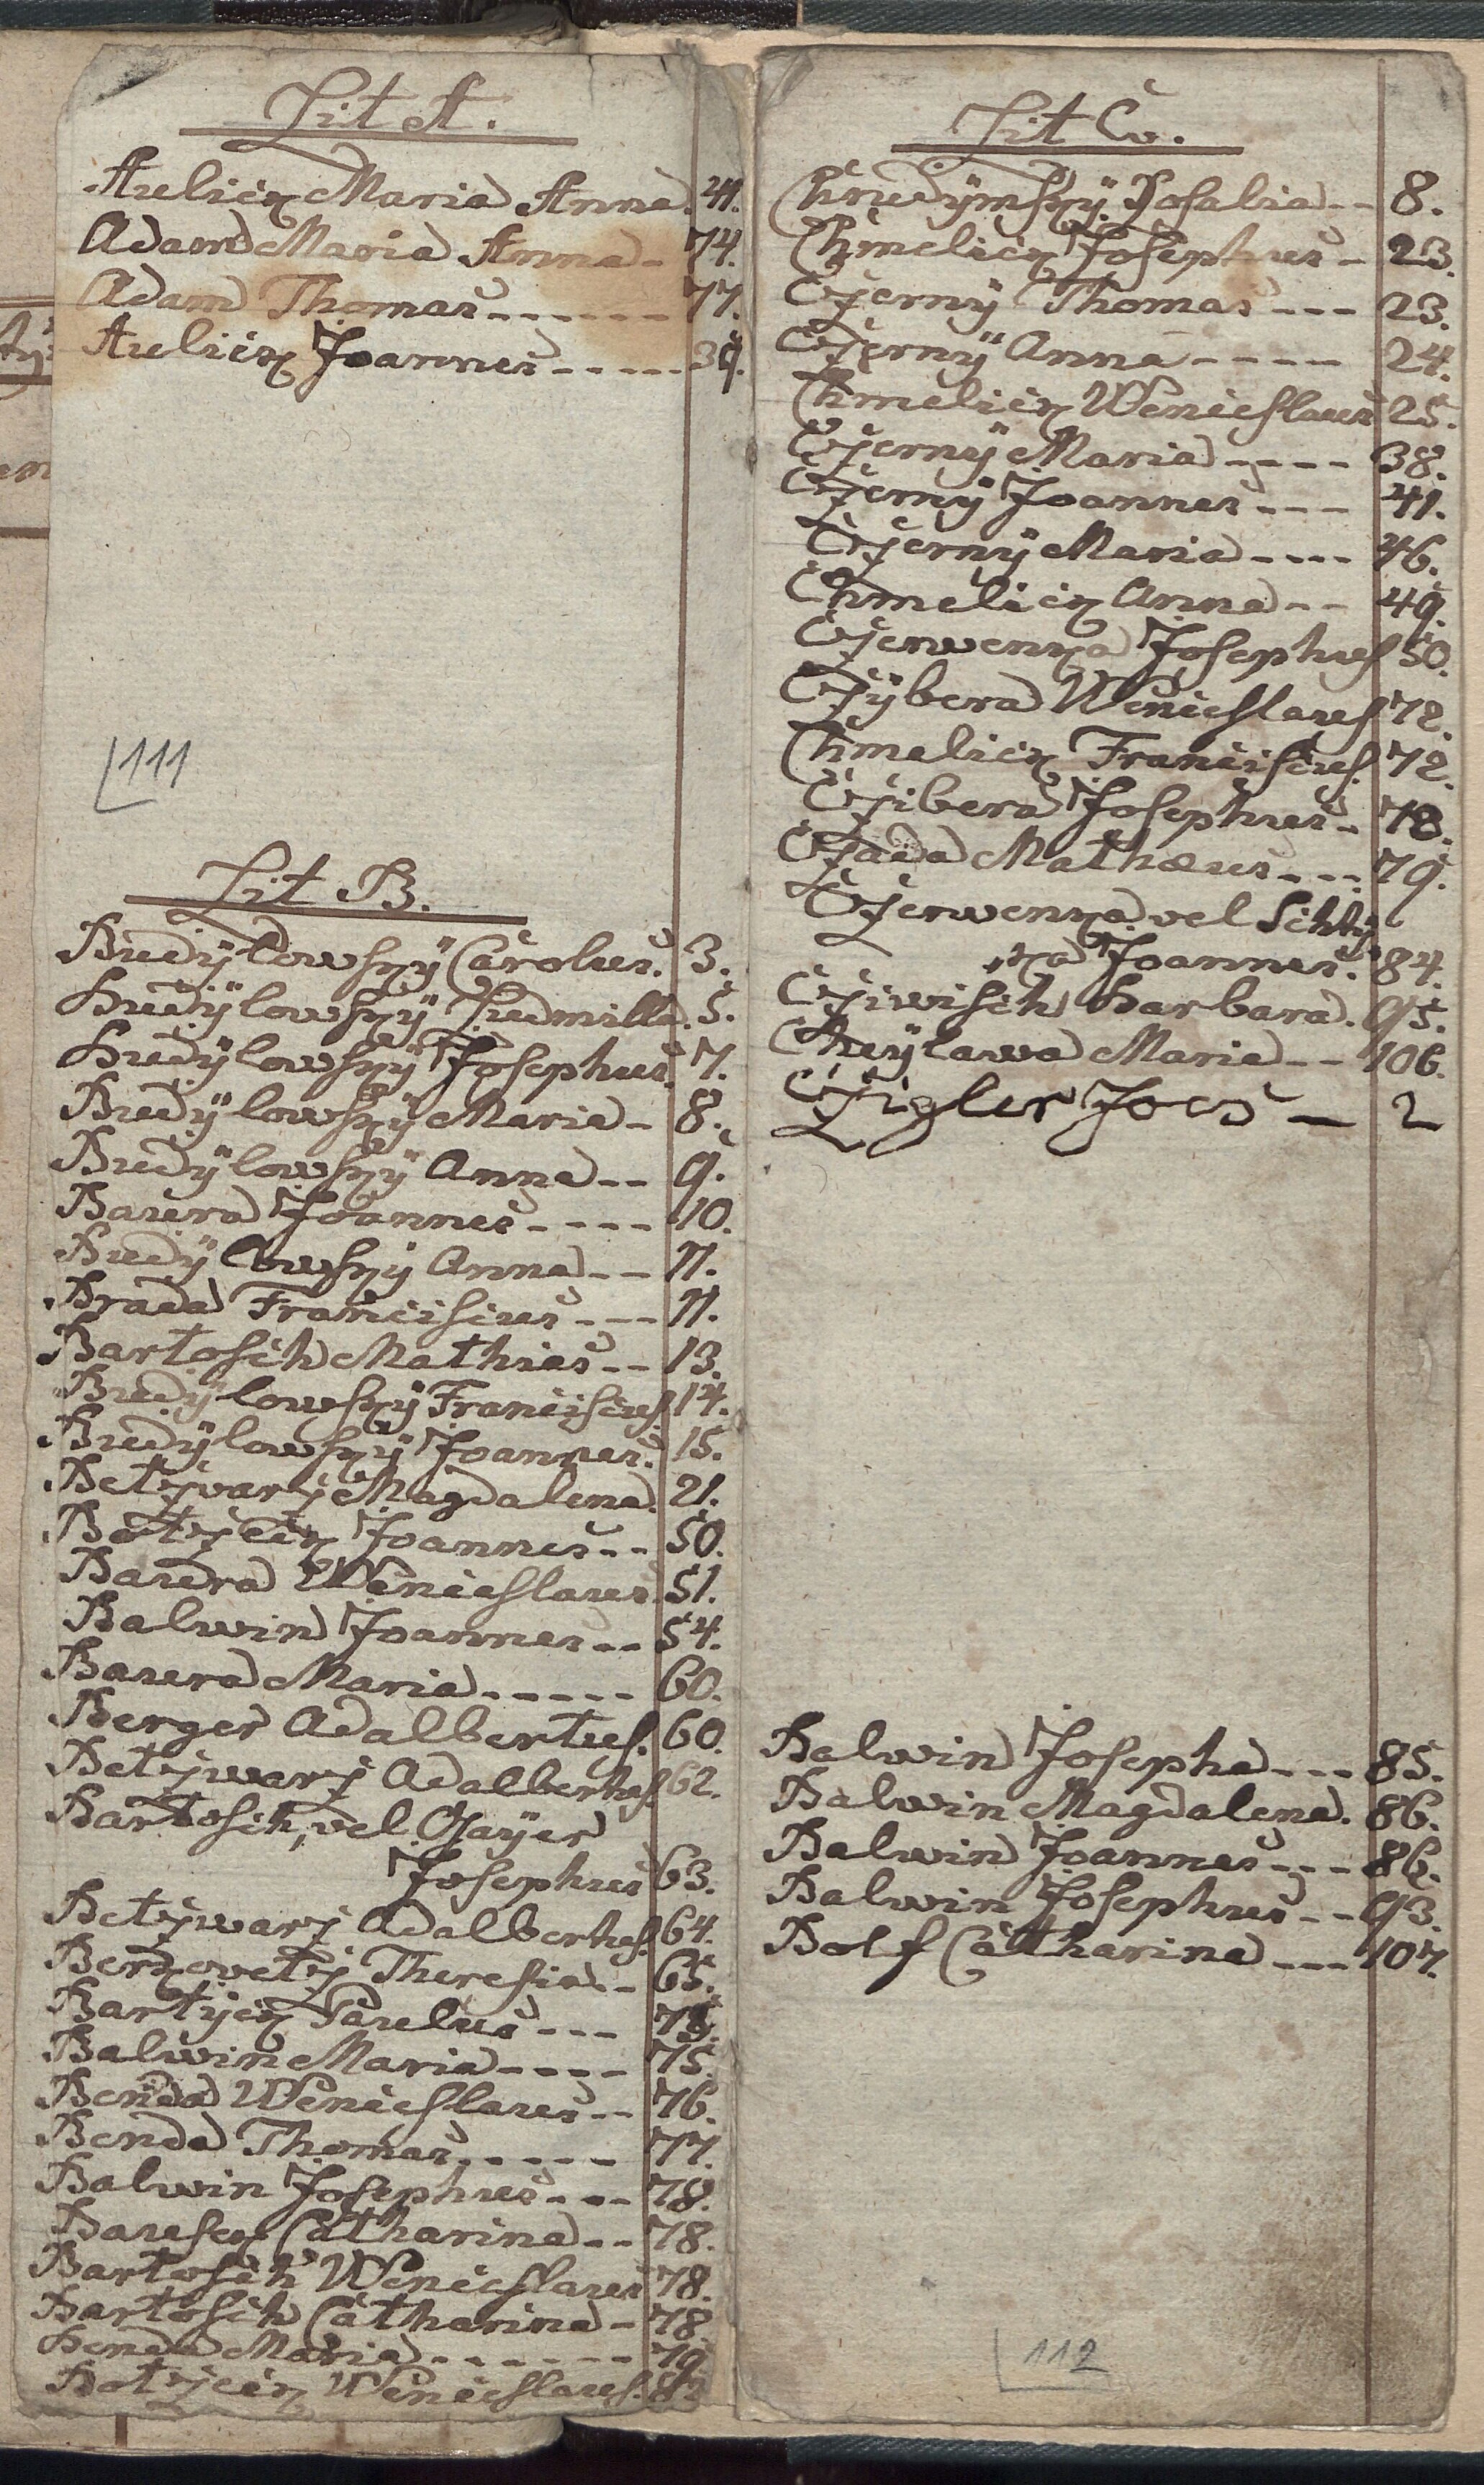 Lit A.
Aulick Maria Anna. 41.
Adam Maria Anna - 74.
Adam Thomas ------ 77.
Aulick Joannes ----- 39.
111
Lit B.
Budÿlowskÿ Carolus. 3.
Budÿlowskÿ Ludmilla. 5.
Budÿlowskÿ Josephus. 7.
Budÿlowskÿ Maria - 8.
Budÿlowskÿ Anna -- 9.
Baura Joannes ---- 10.
Budÿlowskÿ Anna -- 11.
Brada Franciscus --- 11.
Bartosch Mathias -- 13.
Budÿlowskÿ Franciscus. 14.
Budÿlowskÿ Joannes. 15.
Betzvarz Magdalena. 21.
Joannes -- 50.
Baura Wenceslaus 51.
Balwin Joannes -- 54.
Baura Maria ----- 60.
Berger Adalbertus. 60.
Betzwarz Adalbertus. 62.
Bartosch, vel
Josephus 63.
Betzwarz Adalbertus. 64.
Theresia - 65.
Paulus --- 78.
Balwin Maria ---- 75.
Benda Wenceslaus -- 76.
Benda Thomas ----- 77.
Balwin Josephus --- 78.
Catharina -- 78.
Bartosch Wenceslaus 78.
Bartosch Catharina - 78.
Benda Maria ------ 79.
Wenceslaus.
Lit C.
Rosalia -- 8.
Chmelick Josephus - 23.
Czernÿ Thomas --- 23.
Czernÿ Anna ---- 24.
Chmelick Wenceslaus 25.
Czernÿ Maria ---- 38.
Czernÿ Joannes --- 41.
Czernÿ Maria ---- 46.
Chmelick Anna -- 49.
Czerwenka Josephus 50.
Czÿbera Wenceslaus 72.
Chmelick Franciscus. 72.
Czibera Josephus - 78.
Czada Mathæus --- 79.
Czerwenka vel
Joannes. 84.
Cziwisch Barbara. 95.
Maria -- 106.
Czigler Joes — 2
Balwin Josepha --- 85.
Balwin Magdalena. 86.
Balwin Joannes --- 86.
Balwin Josephus -- 93.
Bolf Catharina --- 107.
112